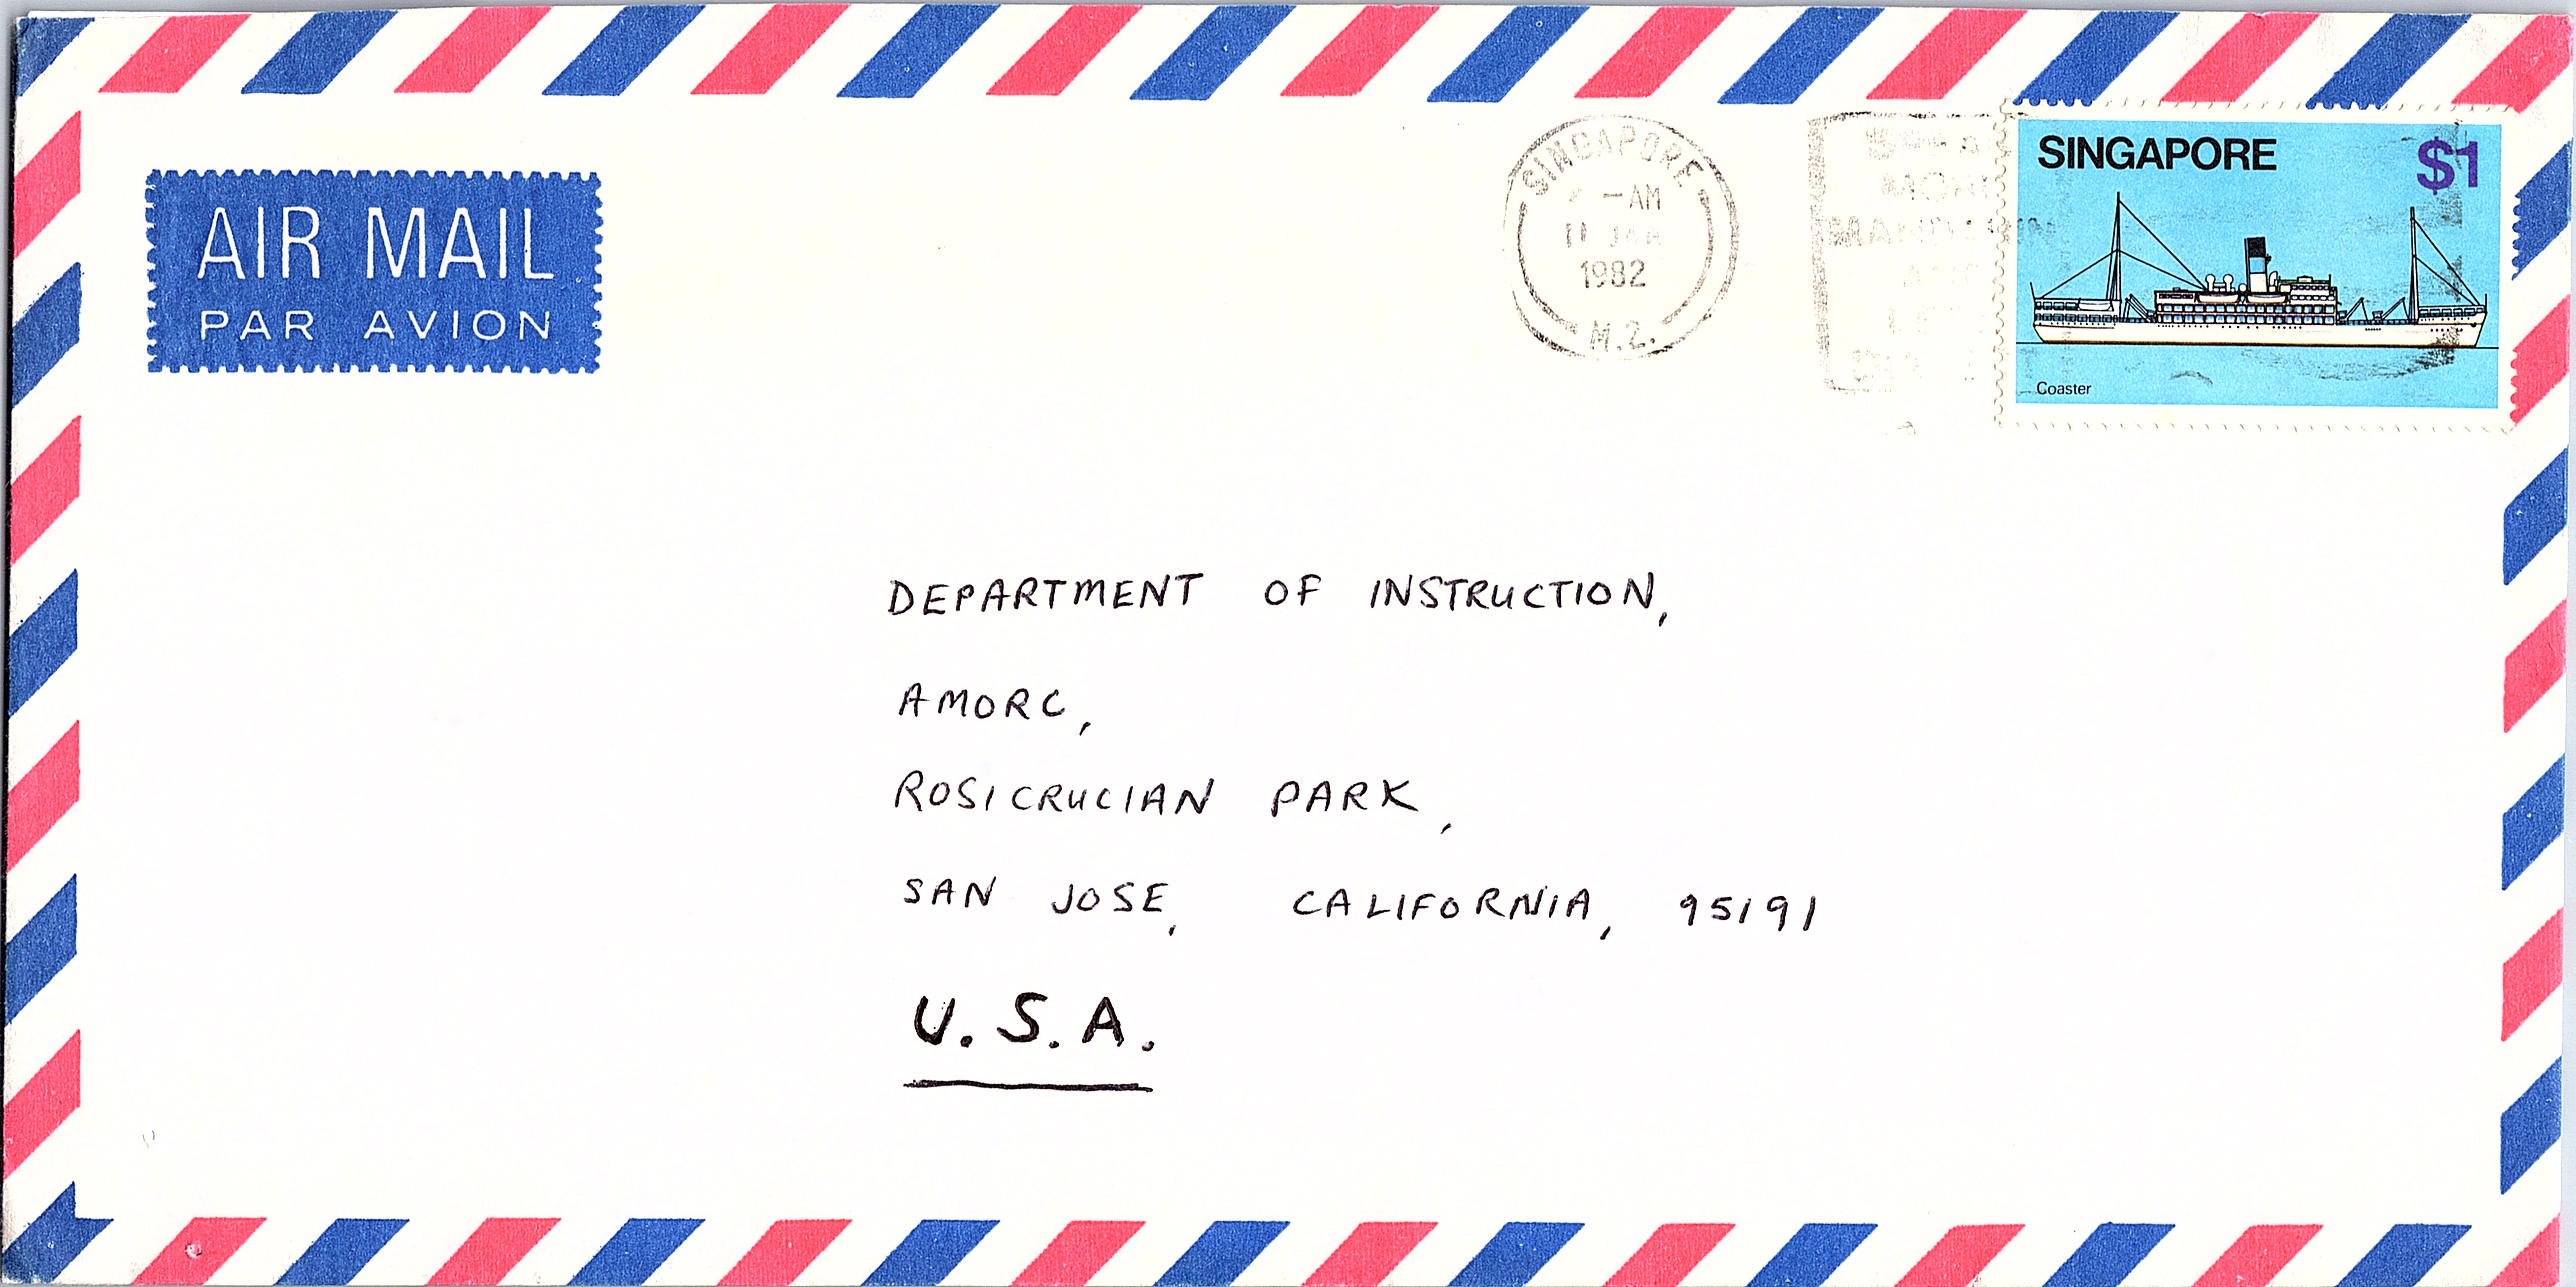 AIR MAIL
PAR AVION
SINGAPORE
-AM
11 JAN
1982
M.Z.
SINGAPORE
$1
Coaster
DEPARTMENT OF INSTRUCTION,
AMORC,
ROSICRUCIAN PARK,
SAN JOSE, CALIFORNIA, 95191
U.S.A.